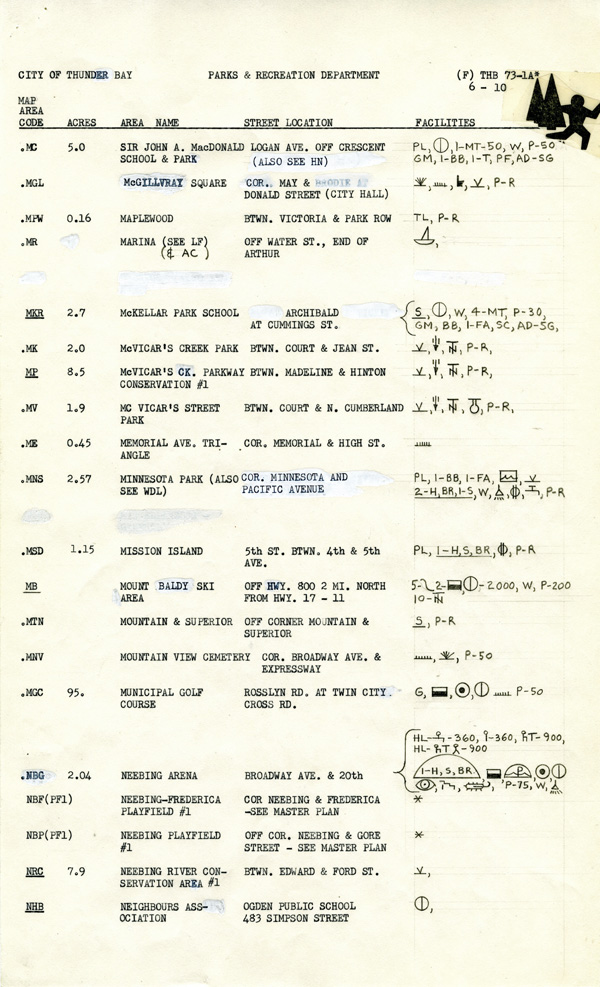 CITY OF THUNDER BAY PARKS & RECREATION DEPARTMENT (F) THB 73-1A*
6 - 10
MAP
AREA
CODE ACRES AREA NAME STREET LOCATION FACILITIES
.MC 5.0 SIR JOHN A. MacDONALD LOGAN AVE. OFF CRESCENT PL, 1-MT-50, W, P-50
SCHOOL & PARK (ALSO SEE HN) GM, 1-BB, 1-T, PF, AD-SG
.MGL McGILLVRAY SQUARE COR. MAY & P-R
DONALD STREET (CITY HALL)
.MPW 0.16 MAPLEWOOD BTWN. VICTORIA & PARK ROW TL, P-R
.MR MARINA (SEE LF) OFF WATER ST., END OF
(& AC) ARTHUR
MKR 2.7 McKELLAR PARK SCHOOL ARCHIBALD S, W, 4-MT, P-30,
AT CUMMINGS ST. GM, BB, 1-FA, SC, AD-SG,
.MK 2.0 McVICAR'S CREEK PARK BTWN. COURT & JEAN ST. P-R,
MP 8.5 McVICAR'S CK. PARKWAY BTWN. MADELINE & HINTON P-R,
CONSERVATION #1
.MV 1.9 MC VICAR'S STREET BTWN. COURT & N. CUMBERLAND P-R,
PARK
.ME 0.45 MEMORIAL AVE. TRI- COR. MEMORIAL & HIGH ST.
ANGLE
.MNS 2.57 MINNESOTA PARK (ALSO COR. MINNESOTA AND PL, 1-BB, 1-FA,
SEE WDL) PACIFIC AVENUE 2-H, BR, 1-S, W, P-R
.MSD 1.15 MISSION ISLAND 5th ST. BTWN. 4th & 5th PL, 1-H, S, BR, P-R
AVE.
MB MOUNT BALDY SKI OFF HWY. 800 2 MI. NORTH 5- 2- -2000, W, P-200
AREA FROM HWY. 17 - 11 10-
.MTN MOUNTAIN & SUPERIOR OFF CORNER MOUNTAIN & S, P-R
SUPERIOR
.MNV MOUNTAIN VIEW CEMETERY COR. BROADWAY AVE. & P-50
EXPRESSWAY
.MGC 95. MUNICIPAL GOLF ROSSLYN RD. AT TWIN CITY G, P-50
COURSE CROSS RD.
HL- -360, -360, T-900,
HL- T -900
.NBG 2.04 NEEBING ARENA BROADWAY AVE. & 20th 1-H, S, BR P
P-75, W,
NBF(PF1) NEEBING-FREDERICA COR NEEBING & FREDERICA *
PLAYFIELD #1 -SEE MASTER PLAN
NBP(PF1) NEEBING PLAYFIELD OFF COR. NEEBING & GORE *
#1 STREET - SEE MASTER PLAN
NRC 7.9 NEEBING RIVER CON- BTWN. EDWARD & FORD ST.
SERVATION AREA #1
NHB NEIGHBOURS ASS- OGDEN PUBLIC SCHOOL
OCIATION 483 SIMPSON STREET